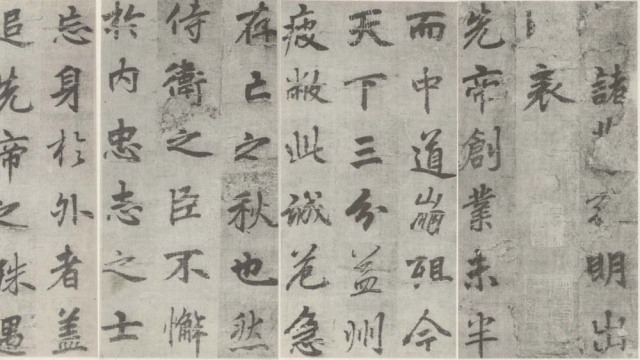 諸明出
表
先帝創業未半
而中道崩殂今
天下三分益州
疲敝此誠危急
存亡之秋也然
侍衛之臣不懈
於内忠志之士
忘身於外者盖
追先帝之殊遇